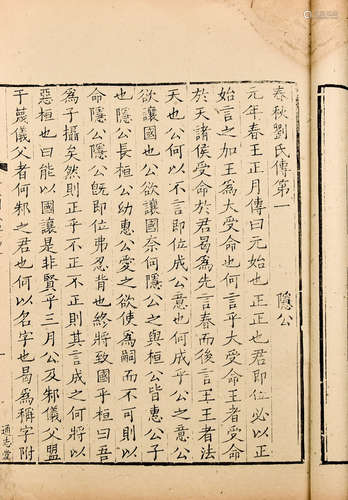 春秋劉氏傳第
隱公
元年春王正月傳曰元始也正正也君即位必以正
始言之加王為大受命也何言乎大受命王者受命
於天諸侯受命於君曷為先言春而後言王王者法
天也公何以不言即位成公意也何成乎公之意公
欲讓國也公欲讓國奈何隱公之與桓公皆惠公子
也隱公長桓公幼惠公愛之欲使為嗣而不可則以
命隱公隱公既即位弗忍背也終將致國乎桓曰吾
為子攝矣然則正乎不正不正則其言成之何將以
惡桓也曰能以國讓是非賢乎三月公及邾儀父盟
于蔑儀父者何邾之君也何以名字也曷為稱字附
通志堂